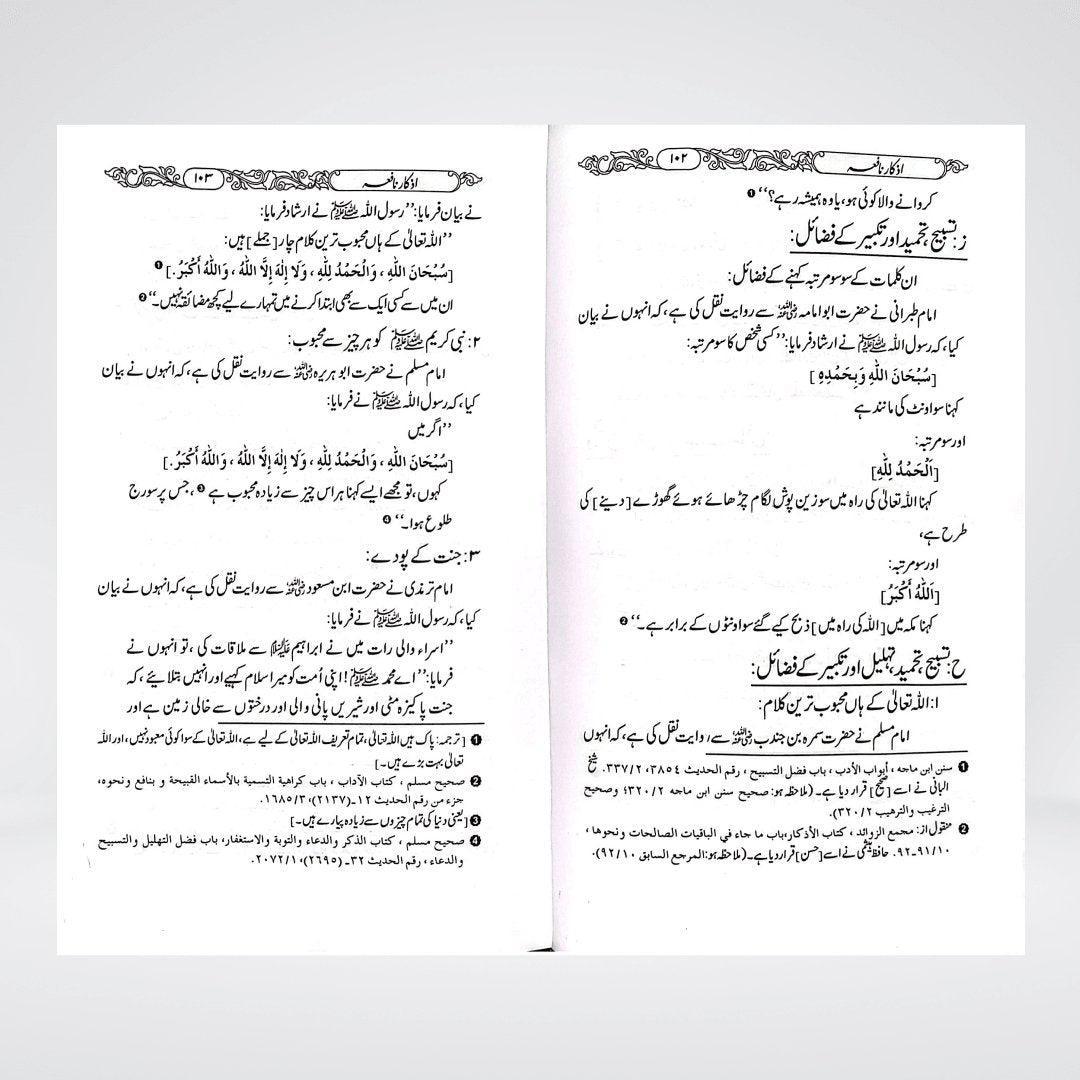 اذکار نافعہ
۱۰۲
کروانے والا کوئی ہو، یا وہ ہمیشہ رہے؟‘‘ ❶
ز: تسبیح، تحمید اور تکبیر کے فضائل:
ان کلمات کے سو سو مرتبہ کہنے کے فضائل:
امام طبرانی نے حضرت ابو امامہ رضی اللہ عنہ سے روایت نقل کی ہے، کہ انہوں نے بیان
کیا، کہ رسول اللہ ﷺ نے ارشاد فرمایا: ’’کسی شخص کا سو مرتبہ:
[سُبْحَانَ اللّٰهِ وَبِحَمْدِهِ]
کہنا سو اونٹ کی مانند ہے
اور سو مرتبہ:
[اَلْحَمْدُ لِلّٰهِ]
کہنا اللہ تعالیٰ کی راہ میں سو زین پوش لگام چڑھائے ہوئے گھوڑے [دینے] کی
طرح ہے،
اور سو مرتبہ:
[اَللّٰهُ أَكْبَرُ]
کہنا مکہ میں [اللہ کی راہ میں] ذبح کیے گئے سو اونٹوں کے برابر ہے۔‘‘ ❷
ح: تسبیح، تحمید، تہلیل اور تکبیر کے فضائل:
۱: اللہ تعالیٰ کے ہاں محبوب ترین کلام:
امام مسلم نے حضرت سمرہ بن جندب رضی اللہ عنہ سے روایت نقل کی ہے، کہ انہوں
❶ سنن ابن ماجه ، أبواب الأدب ، باب فضل التسبيح ، رقم الحديث ٣٨٥٤، ٣٣٧/٢. شیخ
البانی نے اسے [صحیح] قرار دیا ہے۔ (ملاحظہ ہو: صحيح سنن ابن ماجه ٣٢٠/٢؛ وصحيح
الترغيب والترهيب ٣٢٠/٢).
❷ منقول از: مجمع الزوائد ، كتاب الأذكار، باب ما جاء في الباقيات الصالحات ونحوها ،
٩١/١٠-٩٢. حافظ ہیثمی نے اسے [حسن] قرار دیا ہے۔ (ملاحظہ ہو: المرجع السابق ٩٢/١٠).
اذکار نافعہ
۱۰۳
نے بیان فرمایا: ’’رسول اللہ ﷺ نے ارشاد فرمایا:
’’اللہ تعالیٰ کے ہاں محبوب ترین کلام چار [جملے] ہیں:
[سُبْحَانَ اللّٰهِ ، وَالْحَمْدُ لِلّٰهِ ، وَلَا إِلٰهَ إِلَّا اللّٰهُ ، وَاللّٰهُ أَكْبَرُ.] ❶
ان میں سے کسی ایک سے بھی ابتدا کرنے میں تمہارے لیے کچھ مضائقہ نہیں۔‘‘ ❷
۲: نبی کریم ﷺ کو ہر چیز سے محبوب:
امام مسلم نے حضرت ابو ہریرہ رضی اللہ عنہ سے روایت نقل کی ہے، کہ انہوں نے بیان
کیا، کہ رسول اللہ ﷺ نے فرمایا:
’’اگر میں
[سُبْحَانَ اللّٰهِ ، وَالْحَمْدُ لِلّٰهِ ، وَلَا إِلٰهَ إِلَّا اللّٰهُ ، وَاللّٰهُ أَكْبَرُ.]
کہوں، تو مجھے ایسے کہنا ہر اس چیز سے زیادہ محبوب ہے ❸، جس پر سورج
طلوع ہوا۔‘‘ ❹
۳: جنت کے پودے:
امام ترمذی نے حضرت ابن مسعود رضی اللہ عنہ سے روایت نقل کی ہے، کہ انہوں نے بیان
کیا، کہ رسول اللہ ﷺ نے فرمایا:
’’اسراء والی رات میں نے ابراہیم علیہ السلام سے ملاقات کی ، تو انہوں نے
فرمایا: ’’اے محمد ﷺ! اپنی اُمت کو میرا سلام کہیے اور انہیں بتلائیے، کہ
جنت پاکیزہ مٹی اور شیریں پانی والی اور درختوں سے خالی زمین ہے اور
❶ [ترجمہ: پاک ہیں اللہ تعالیٰ، تمام تعریف اللہ تعالیٰ کے لیے ہے، اللہ تعالیٰ کے سوا کوئی معبود نہیں، اور اللہ
تعالیٰ بہت بڑے ہیں۔]
❷ صحيح مسلم ، كتاب الآداب ، باب كراهية التسمية بالأسماء القبيحة و بنافع ونحوه،
جزء من رقم الحديث ١٢-(٢١٣٧)، ١٦٨٥/٣.
❸ [یعنی دنیا کی تمام چیزوں سے زیادہ پیارے ہیں۔]
❹ صحيح مسلم ، كتاب الذكر والدعاء والتوبة والاستغفار، باب فضل التهليل والتسبيح
والدعاء ، رقم الحديث ٣٢-(٢٦٩٥)، ٢٠٧٢/١٠.